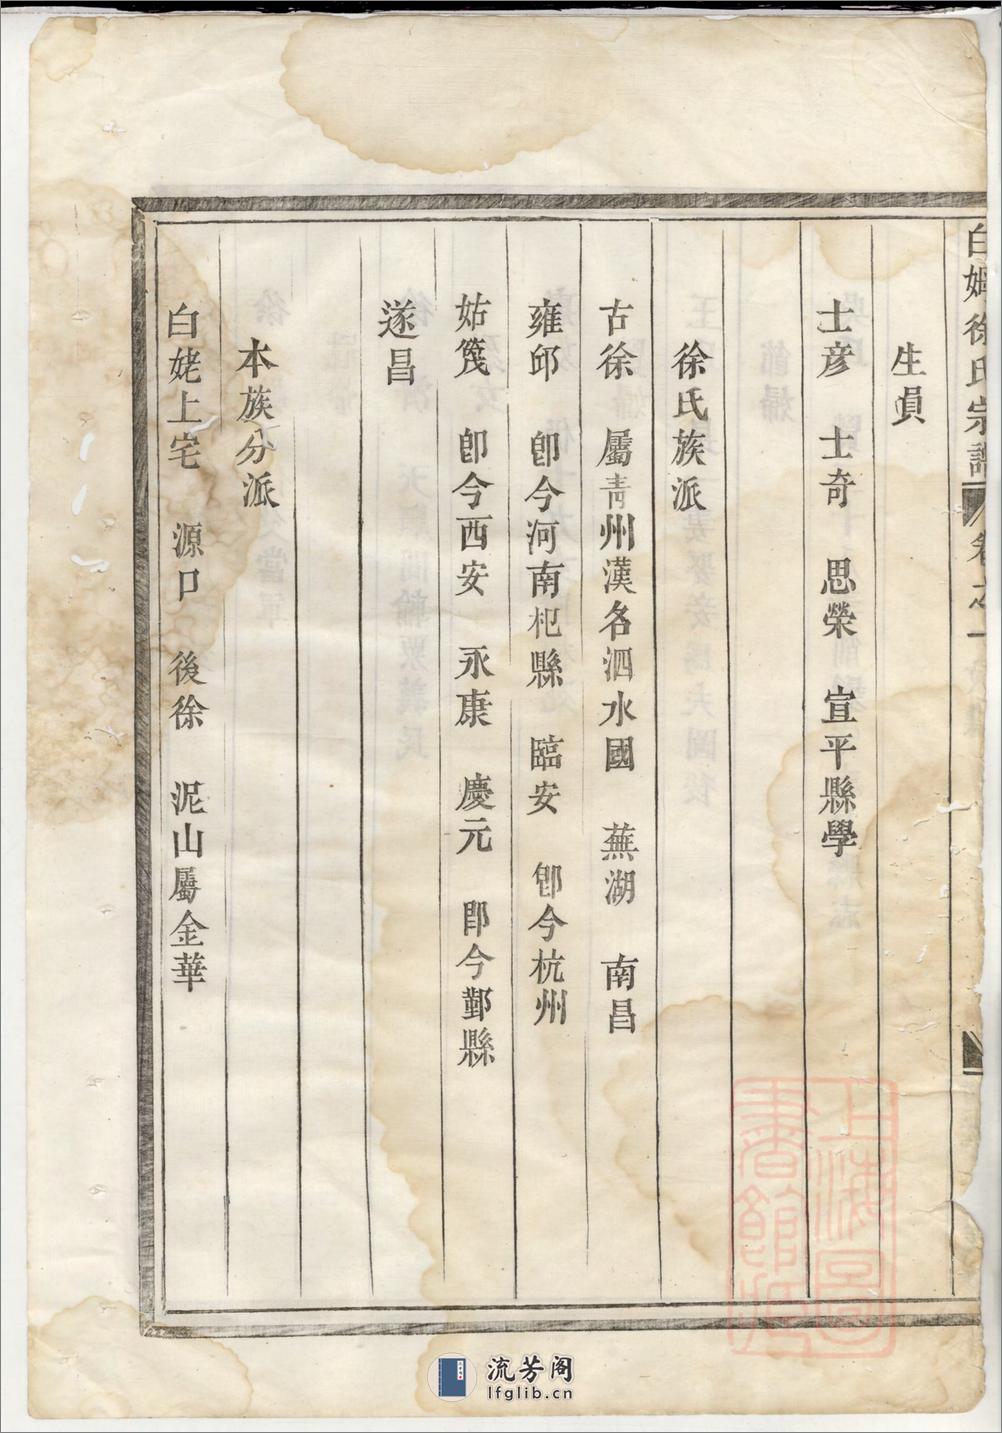 白姆徐氏宗譜 卷之一
生員
士彦 士奇 思榮 宣平縣學
徐氏族派
古徐 屬青州漢名泗水國 蕪湖 南昌
雍邱 卽今河南杞縣 臨安 卽今杭州
姑篾 卽今西安 永康 慶元 卽今鄞縣
遂昌
本族分派
白姥上宅 源口 後徐 泥山屬金華
上海圖書館藏
流芳阁
lfglib.cn